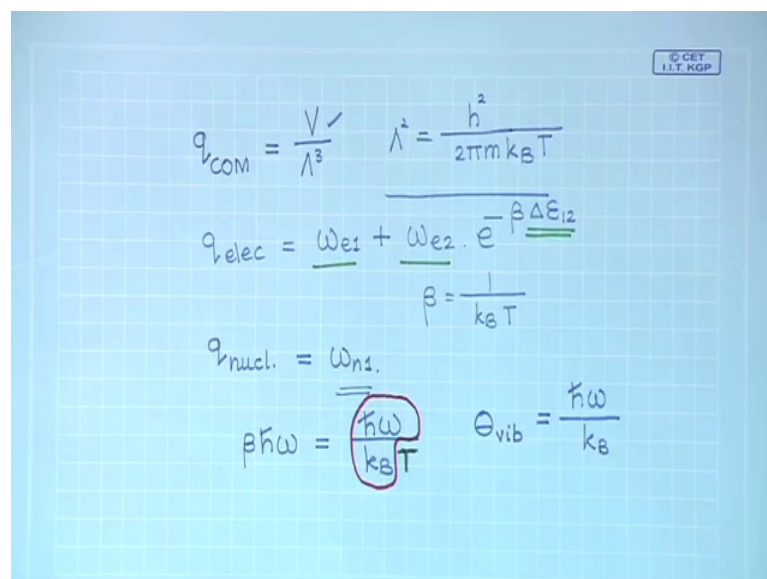 © CET
I.I.T. KGP
q_COM = V/Λ³ ✓ Λ² = h²/2πmk_BT
q_elec = ω_e1 + ω_e2 . e^(-βΔε_12)
β = 1/k_BT
q_nucl. = ω_n1.
βħω = ħω/k_BT Θ_vib = ħω/k_B